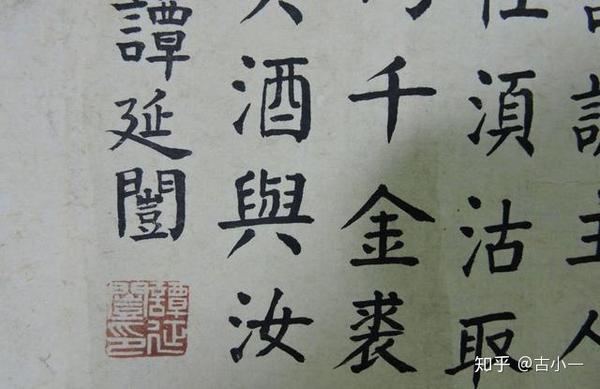 主人
湏沽取
千金裘
酒與汝
譚延闓
譚延闓印
知乎 @古小一